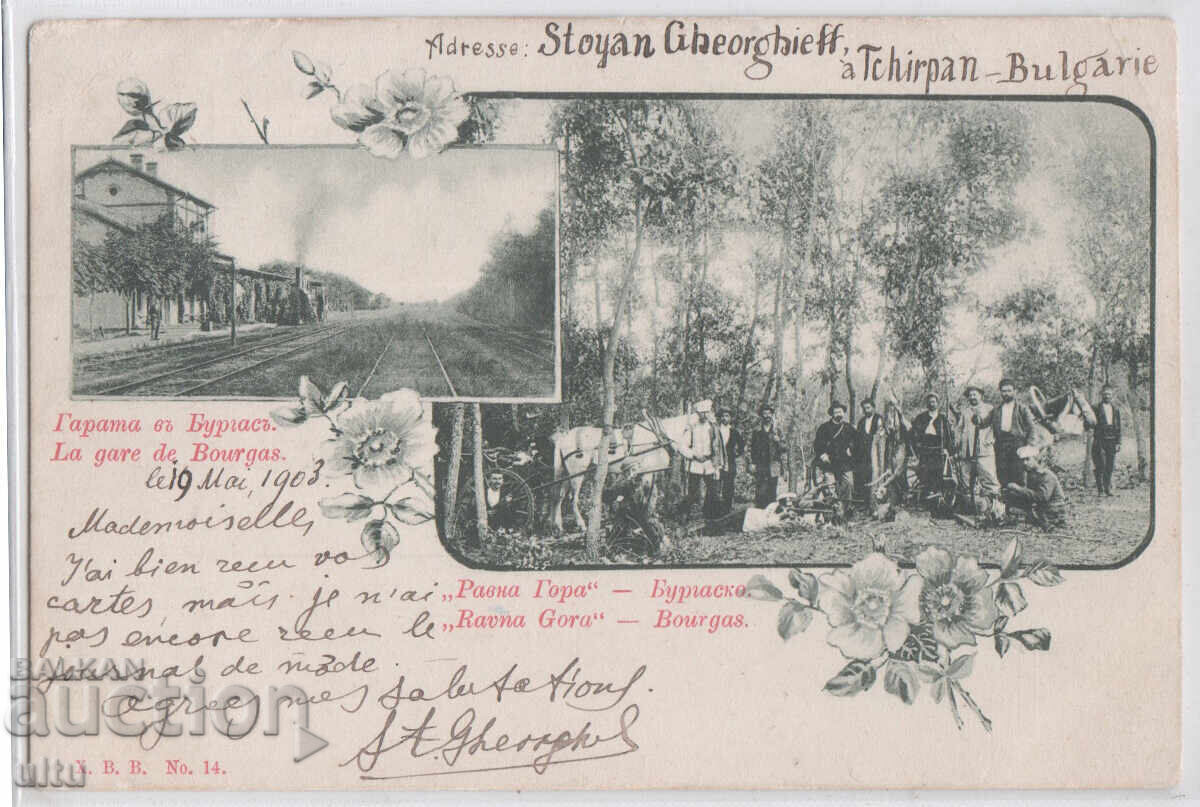 Adresse: Stoyan Gheorghieff,
à Tchirpan - Bulgarie
Гарата въ Бургасъ.
La gare de Bourgas.
le 19 Mai, 1903.
Mademoiselle,
J'ai bien recu vos
cartes, mais je n'ai
pas encore recu le
journal de mode.
Agreez mes salutations.
St. Gheorghieff
„Равна Гора“ — Бургаско.
„Ravna Gora“ — Bourgas.
X. B. B. No. 14.
BALKAN
auction
ultu